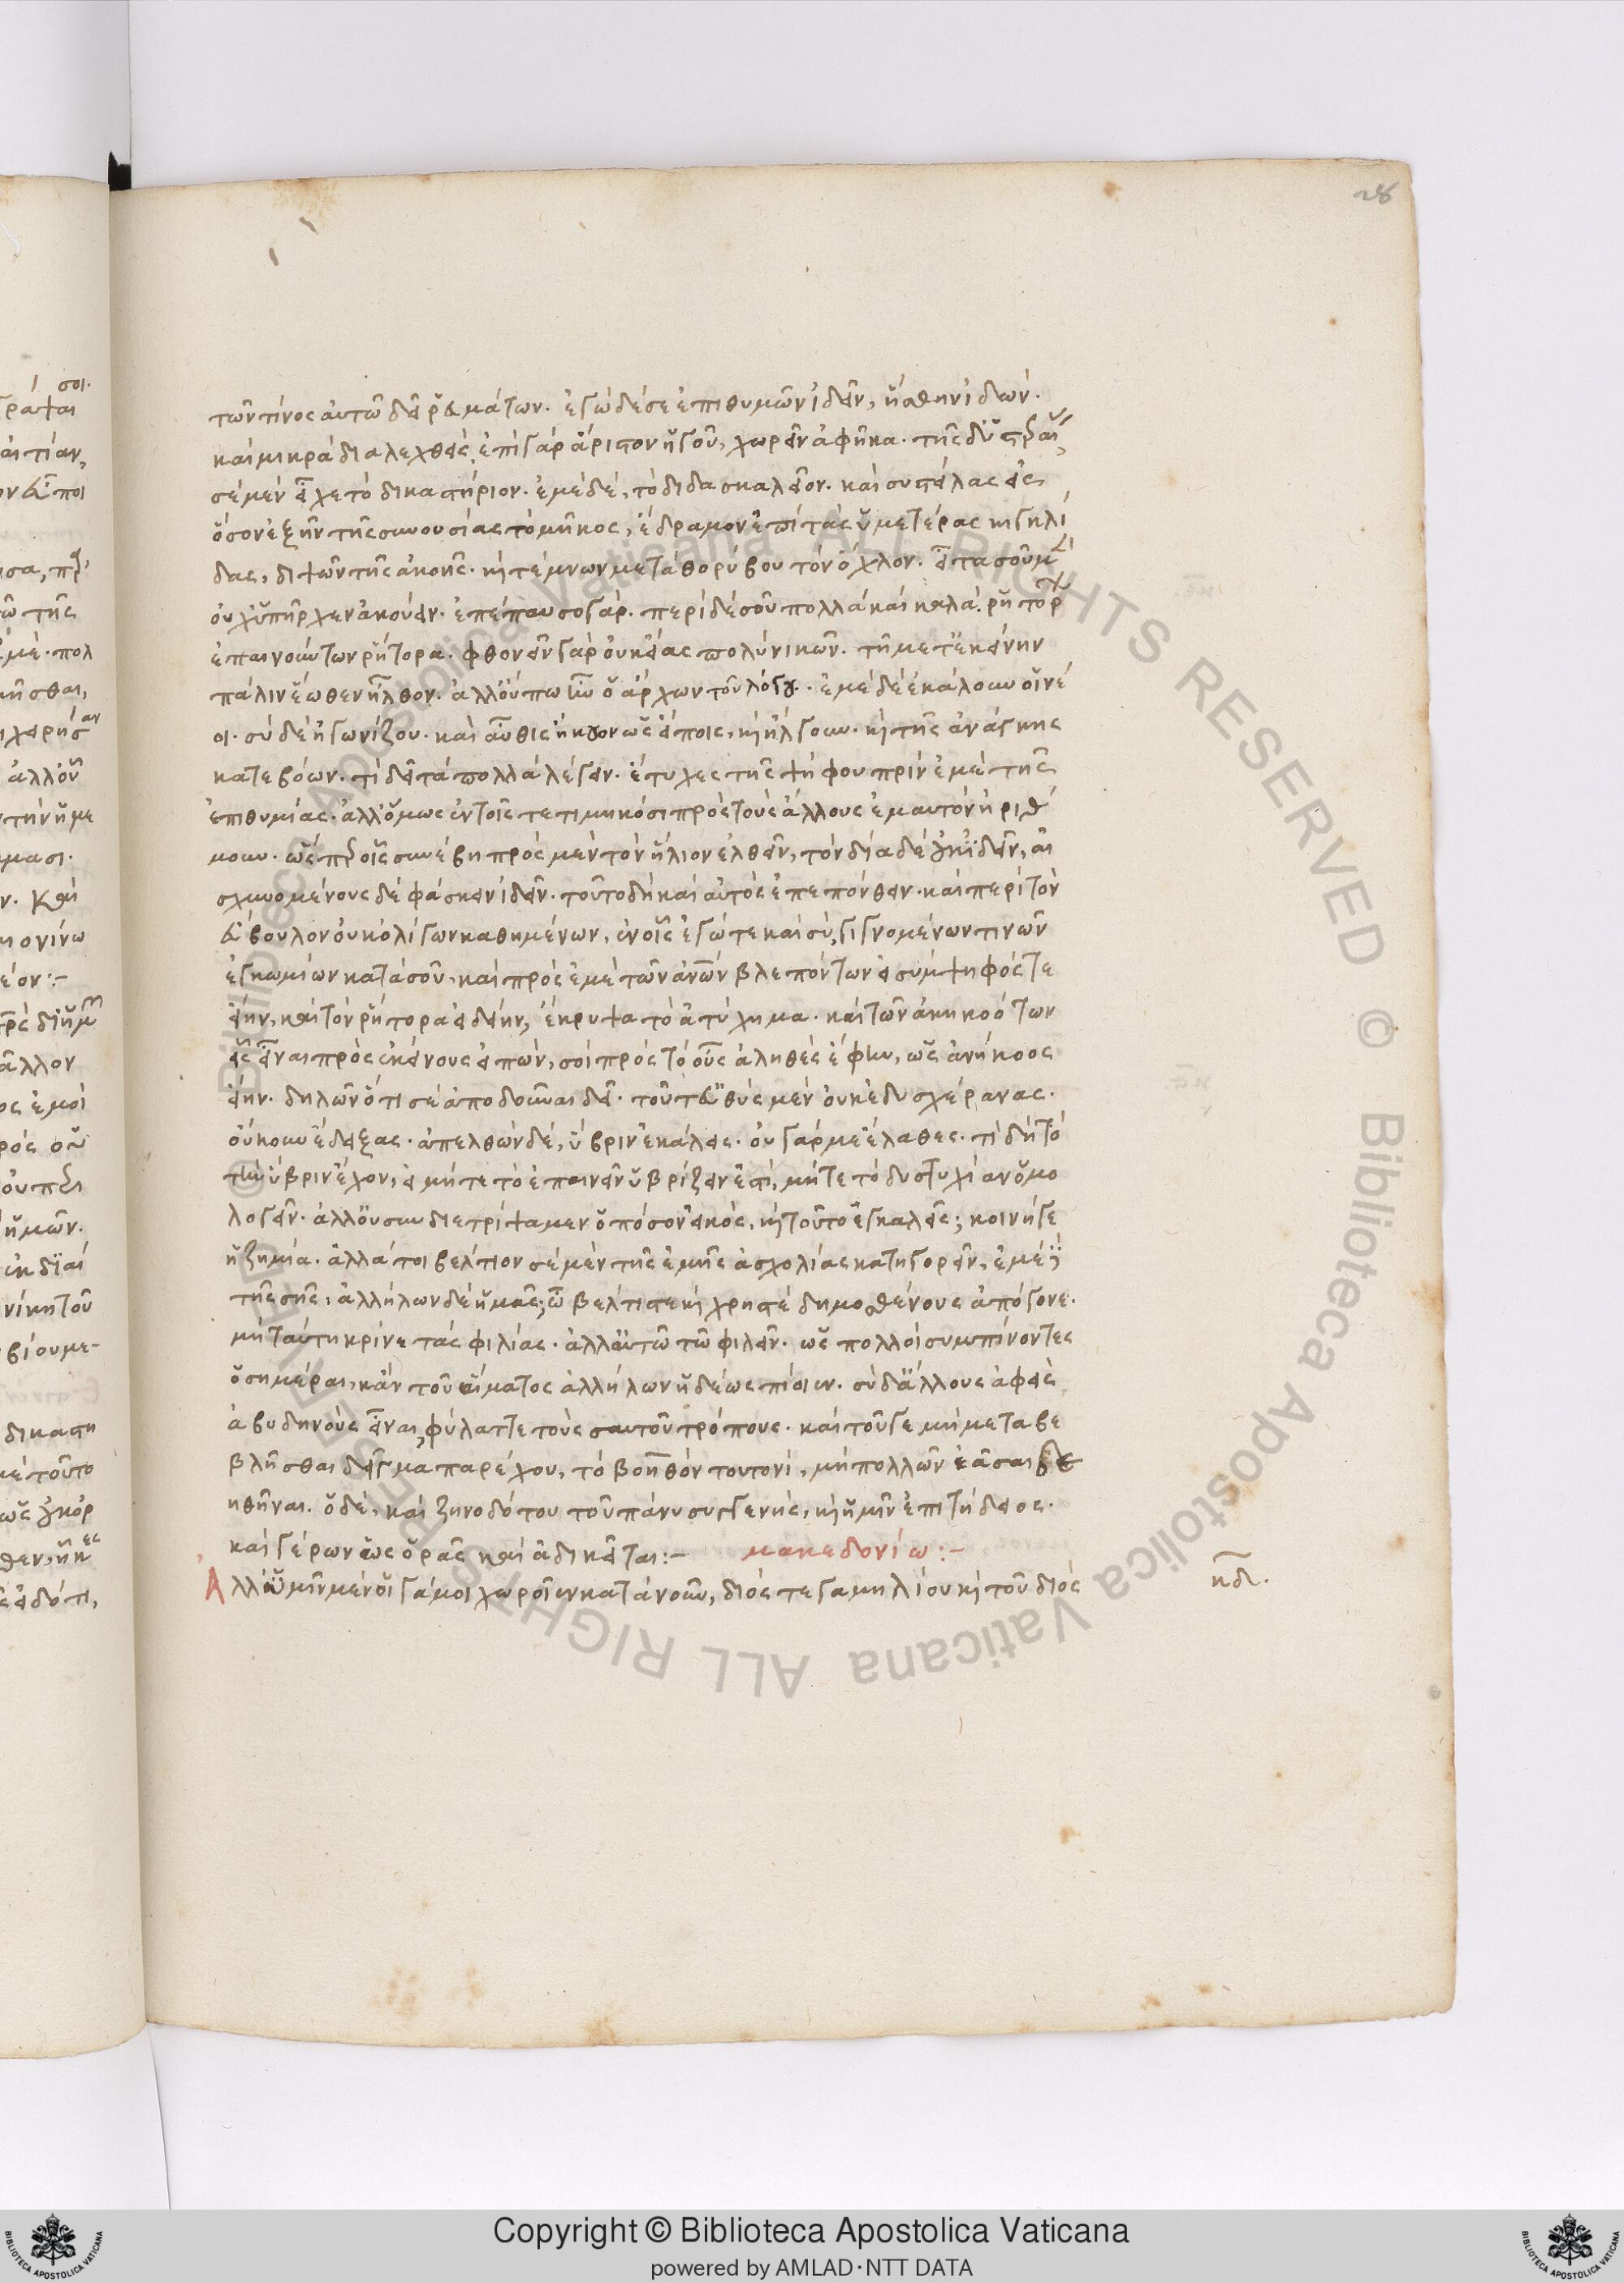 των τίνος αὐτῷ δεῖ ῥευμάτων. ἐγὼ δέ σε ἐπιθυμῶν ἰδεῖν, ᾔσθην ἰδών.
καὶ μικρὰ διαλεχθεὶς, ἐπὶ γὰρ ἄριστον ᾔγου, χωρεῖν ἀφῆκα. τῆς δ' ὑστεραί
σὲ μὲν εἶχε τὸ δικαστήριον. ἐμὲ δέ, τὸ διδασκαλεῖον. καὶ συστείλας εἰς
ὅσον ἐξῆν τῆς συνουσίας τὸ μῆκος, ἔδραμον ἐπὶ τὰς ὑμετέρας κιγκλί
δας, διψῶν τῆς ἀκοῆς. καὶ τέμνων μετὰ θορύβου τὸν ὄχλον. εἶτα σοῦ μ
οὐχ ὑπῆρχεν ἀκούειν. ἐπέπαυσο γάρ. περὶ δὲ σοῦ πολλὰ καὶ καλὰ. ῥητορ
ἐπαινούντων ῥήτορα. φθονεῖν γὰρ οὐκ εἴας πολὺ νικῶν. τῇ μετ' ἐκείνην
πάλιν ἕωθεν ἦλθον. ἀλλ' οὔπω ἦν ὁ ἄρχων τοῦ λόγου. ἐμὲ δὲ ἐκάλουν οἱ νέ
οι. σὺ δὲ ἠγωνίζου. καὶ αὖθις ἤκουον ὡς εἴποις, καὶ ἤλγουν. καὶ τῆς ἀνάγκης
κατεβόων. τί δεῖ τὰ πολλὰ λέγειν. ἔτυχες τῆς ψήφου πρὶν ἐμὲ τῆς
ἐπιθυμίας. ἀλλ' ὅμως ἐν τοῖς τετιμηκόσι πρὸς τοὺς ἄλλους ἐμαυτὸν ἠριθ
μουν. ὥσπερ οἷς συνέβη πρὸς μὲν τὸν ἥλιον ἐλθεῖν, τὸν δία δὲ ἐκεῖ ἰδεῖν, αἰ
σχυνομένους δὲ φάσκειν ἰδεῖν. τοῦτο δὴ καὶ αὐτὸς ἐπεπόνθειν. καὶ περὶ τὸν
εὔβουλον οὐκ ὀλίγων καθημένων, ἐν οἷς ἐγώ τε καὶ σύ, γιγνομένων τινῶν
ἐγκωμίων κατὰ σοῦ, καὶ πρὸς ἐμὲ τῶν ἀνῶν βλεπόντων εἰ σύμψηφός τε
εἴην, καὶ τὸν ῥήτορα εἰδείην, ἔκρυψα τὸ ἀτύχημα. καὶ τῶν ἀκηκοότων
εἷς εἶναι πρὸς ἐκείνους εἰπών, σοὶ πρὸς τὸ οὖς ἀληθὲς ἔφην, ὡς ἀνήκοος
εἴην. δηλῶν ὅτι σὲ ἀποδοῦναι δεῖ. τοῦτ' εὐθὺς μὲν οὐκ ἐδυσχέρανας.
οὔκουν ἔδειξας. ἀπελθὼν δέ, ὕβριν ἐκάλεις. οὐ γάρ με ἔλαθες. τί δὴ τὸ
τὴν ὕβριν ἔχον, εἰ μήτε τὸ ἐπαινεῖν ὑβρίζειν ἐστί, μήτε τὸ δυστυχίαν ὁμο
λογεῖν. ἀλλ' οὐ συνδιετρίψαμεν ὁπόσον εἰκός, καὶ τοῦτο ἐγκαλεῖς; κοινή γε
ἡ ζημία. ἀλλά τοι βέλτιον σὲ μὲν τῆς ἐμῆς ἀσχολίας κατηγορεῖν, ἐμὲ δὲ
τῆς σῆς, ἀλλήλων δὲ ἡμᾶς; ὦ βέλτιστε καὶ χρηστὲ δημοσθένους ἀπόγονε.
μὴ ταύτῃ κρῖνε τὰς φιλίας. ἀλλ' αὐτῷ τῷ φιλεῖν. ὡς πολλοὶ συμπίνοντες
ὁσημέραι, κἂν τοῦ αἵματος ἀλλήλων ἡδέως πίοιεν. σὺ δ' ἄλλους ἀφεὶς
ἀβυδηνοὺς εἶναι, φύλαττε τοὺς σαυτοῦ τρόπους. καὶ τοῦ γε μὴ μεταβε
βλῆσθαι δεῖγμα παρέχου, τὸ βοηθὸν τουτονὶ, μὴ πολλῶν ἐᾶσαι δε
ηθῆναι. ὁ δὲ, καὶ ζηνοδότου τοῦ πάνυ συγγενής, καὶ ἡμῖν ἐπιτήδειος.
καὶ γέρων ὡς ὁρᾷς καὶ ἀδικεῖται:- μακεδονίω:-
Ἀλλ' ὑμῖν μὲν οἱ γάμοι χωροῖεν κατὰ νοῦν, διός τε γαμηλίου καὶ τοῦ διός
κδ.
Copyright © Biblioteca Apostolica Vaticana
powered by AMLAD·NTT DATA